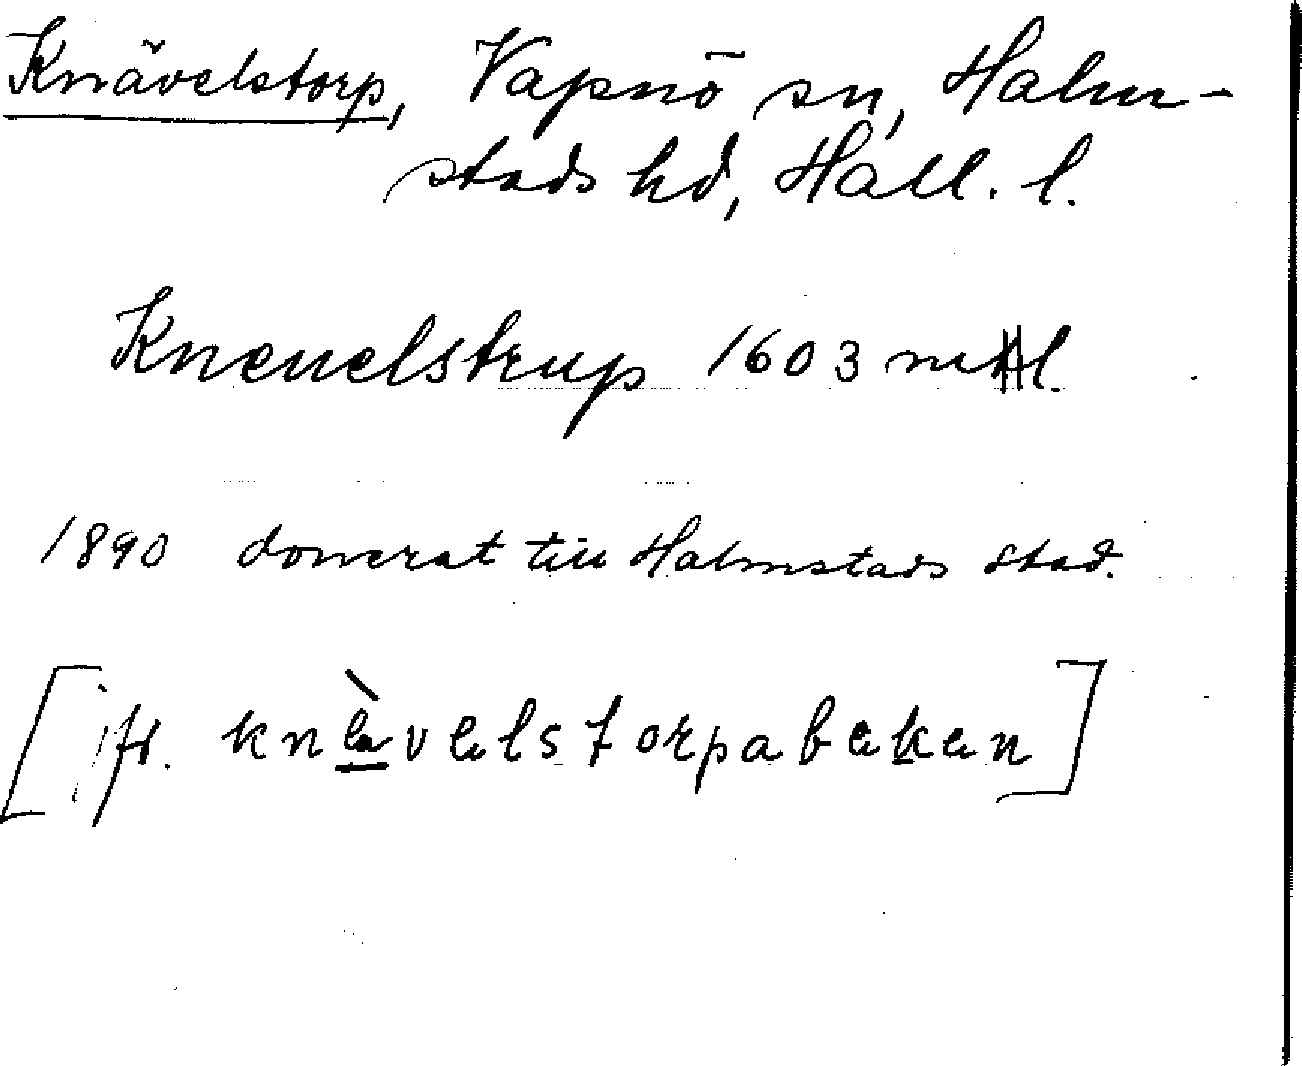 Knävelstorp, Vapnö sn, Halm-
stads hd, Hall. l.
Kneuelstrup 1603 mtl.
1890 donerat till Halmstads stad.
[jfr. knävelstorpabäken]